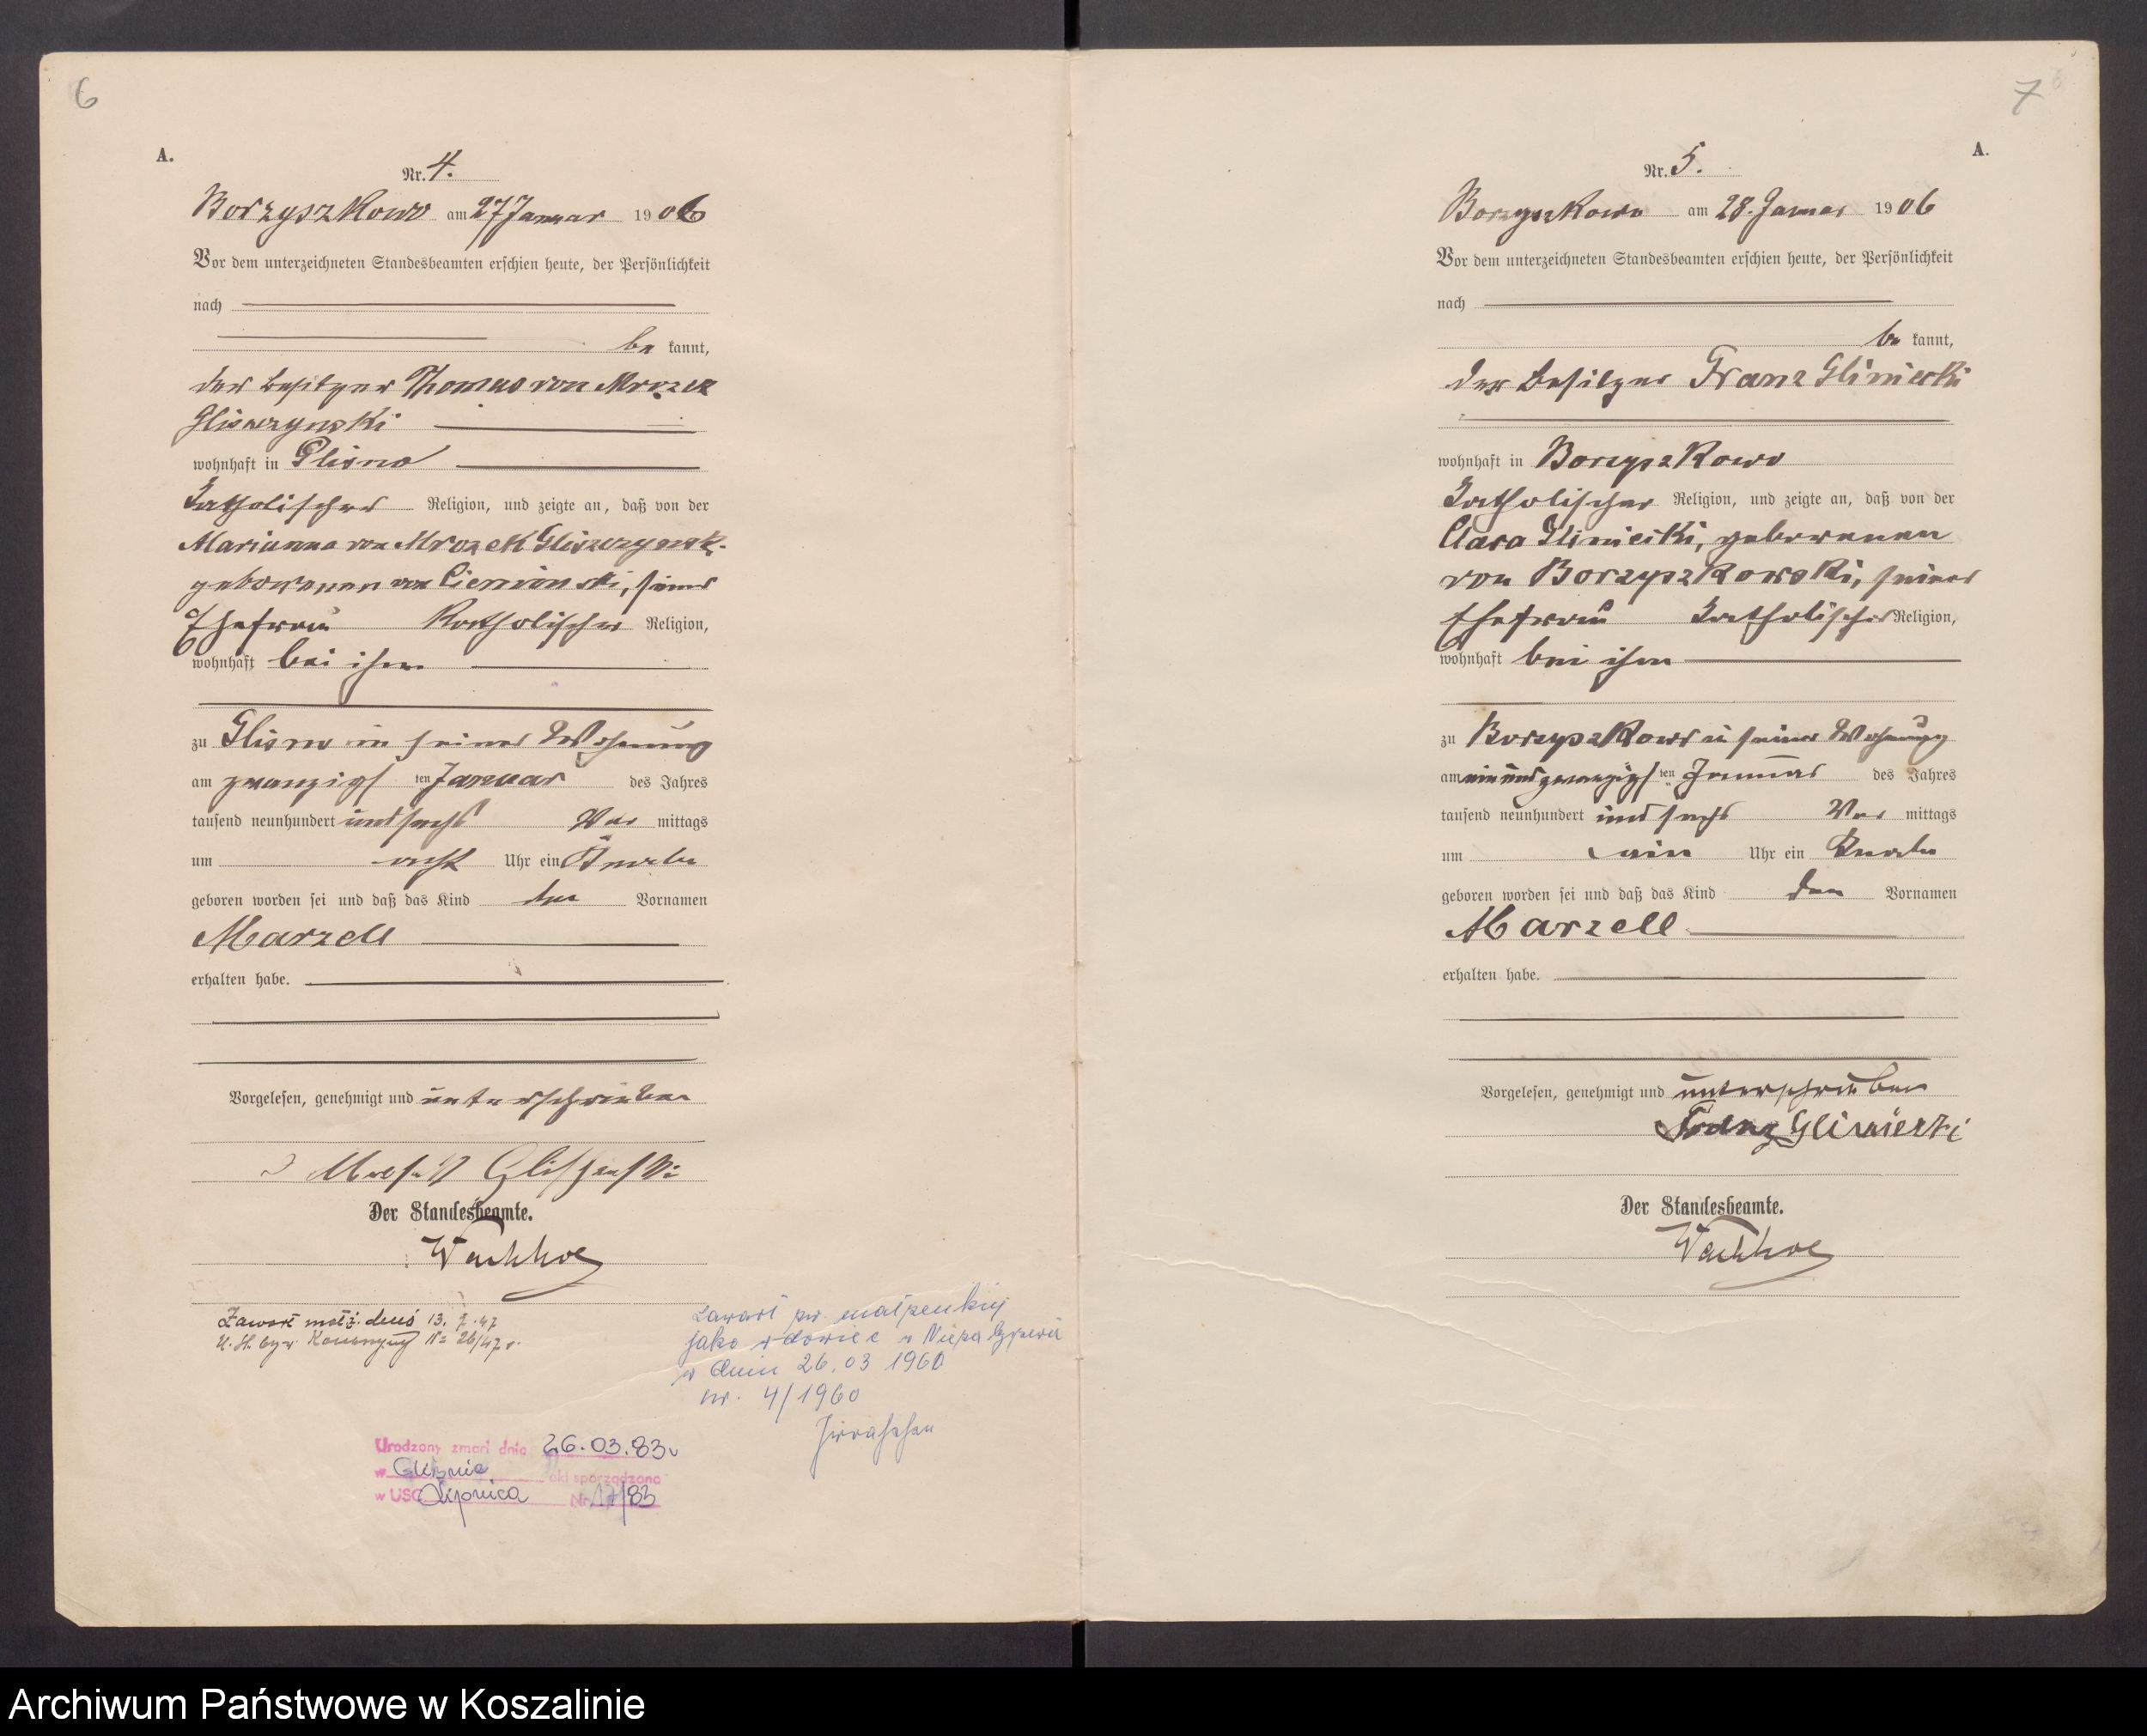 6
A.
Nr. 4.
Borzyszkowo am 27 Januar 1906
Vor dem unterzeichneten Standesbeamten erschien heute, der Persönlichkeit
nach
be kannt,
der Besitzer Thomas von Mrozek
Gliszczynski
wohnhaft in Glisno
katholischer Religion, und zeigte an, daß von der
Marianna von Mrozek Gliszczynski
geborenen von Cieminski, seiner
Ehefrau katholischer Religion,
wohnhaft bei ihm
zu Glisno in seiner Wohnung
am zwanzigsten Januar des Jahres
tausend neunhundert und sechs Vor mittags
um acht Uhr ein Knabe
geboren worden sei und daß das Kind den Vornamen
Marzell
erhalten habe.
Vorgelesen, genehmigt und unterschrieben
Der Standesbeamte.
Zawarł małż. dnia 13. 7. 47
Nr 26/47 r.
Zawarł zw. małżeński
jako wdowiec w
w dniu 26.03 1960
nr. 4/1960
Urodzony zmarł dnia 26.03.83 r
w Gliśnie akt sporządzono
w USC Lipnica Nr 17/83
7
A.
Nr. 5.
Borzyszkowo am 28. Januar 1906
Vor dem unterzeichneten Standesbeamten erschien heute, der Persönlichkeit
nach
be kannt,
der Besitzer Franz Gliniecki
wohnhaft in Borzyszkowo
katholischer Religion, und zeigte an, daß von der
Clara Gliniecki, geborenen
von Borzyszkowski, seiner
Ehefrau katholischer Religion,
wohnhaft bei ihm
zu Borzyszkowo in seiner Wohnung
am ein und zwanzigsten Januar des Jahres
tausend neunhundert und sechs Vor mittags
um ein Uhr ein Knabe
geboren worden sei und daß das Kind den Vornamen
Marzell
erhalten habe.
Vorgelesen, genehmigt und unterschrieben
Franz Gliniecki
Der Standesbeamte.
Archiwum Państwowe w Koszalinie